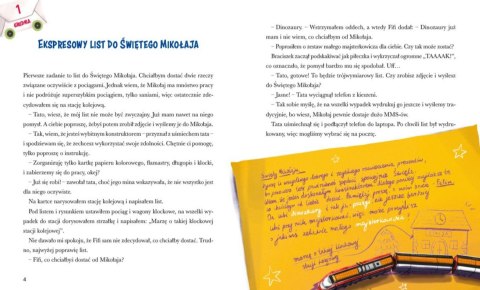 1
EKSPRESOWY LIST DO ŚWIĘTEGO MIKOŁAJA
Pierwsze zadanie to list do Świętego Mikołaja. Chciałbym dostać dwie rzeczy
związane oczywiście z pociągami. Jednak wiem, że Mikołaj ma mnóstwo pracy
i nie podróżuje superszybkim pociągiem, tylko saniami, więc ostatecznie zde-
cydowałem się na stację kolejową.
– Tato, wiem, że mój list nie może być zwyczajny. Już mam nawet na niego
pomysł. A ciebie poproszę, żebyś potem zrobił mu zdjęcie i wysłał do Mikołaja.
– Tak, wiem, że jesteś wybitnym konstruktorem – przyznał z uśmiechem tata –
i spodziewam się, że zechcesz wykorzystać swoje zdolności. Chętnie ci pomogę,
tylko poproszę o instrukcję.
– Zorganizuję tylko kartkę papieru kolorowego, flamastry, długopis i klocki,
i zabierzemy się do pracy, okej?
– Już się robi! – zawołał tata, choć jego mina wskazywała, że nie wszystko jest
dla niego oczywiste.
Na kartce narysowałem stację kolejową i napisałem list.
Pod listem i rysunkiem ustawiłem pociąg i wagony klockowe, na wszelki wy-
padek do stacji dorysowałem strzałkę i napisałem: „Marzę o takiej klockowej
stacji kolejowej”.
Nie dawało mi spokoju, że Fifi sam nie zdecydował, co chciałby dostać. Trud-
no, najwyżej poprawię list.
– Fifi, co chciałbyś dostać od Mikołaja?
4
– Dinozaury. – Wstrzymałem oddech, a wtedy Fifi dodał: – Dinozaury już
mam i nie wiem, co chciałbym od Mikołaja.
– Poprosiłem o zestaw małego majsterkowicza dla ciebie. Czy tak może zostać?
Braciszek zaczął podskakiwać jak piłeczka i wykrzyczał ogromne „TAAAAK!”,
co oznaczało, że pomysł bardzo mu się spodobał. Uff…
– Tato, gotowe! To będzie trójwymiarowy list. Czy zrobisz zdjęcie i wyślesz
do Mikołaja?
– Jasne! – Tata wyciągnął telefon z kieszeni.
– Tak sobie myślę, że na wszelki wypadek wydrukuj go jeszcze i wyślemy tra-
dycyjnie, bo wiesz, Mikołaj pewnie dostaje dużo MMS-ów.
Tata uśmiechnął się i podłączył telefon do laptopa. Po chwili list był wydru-
kowany, więc mogliśmy wybrać się na pocztę.